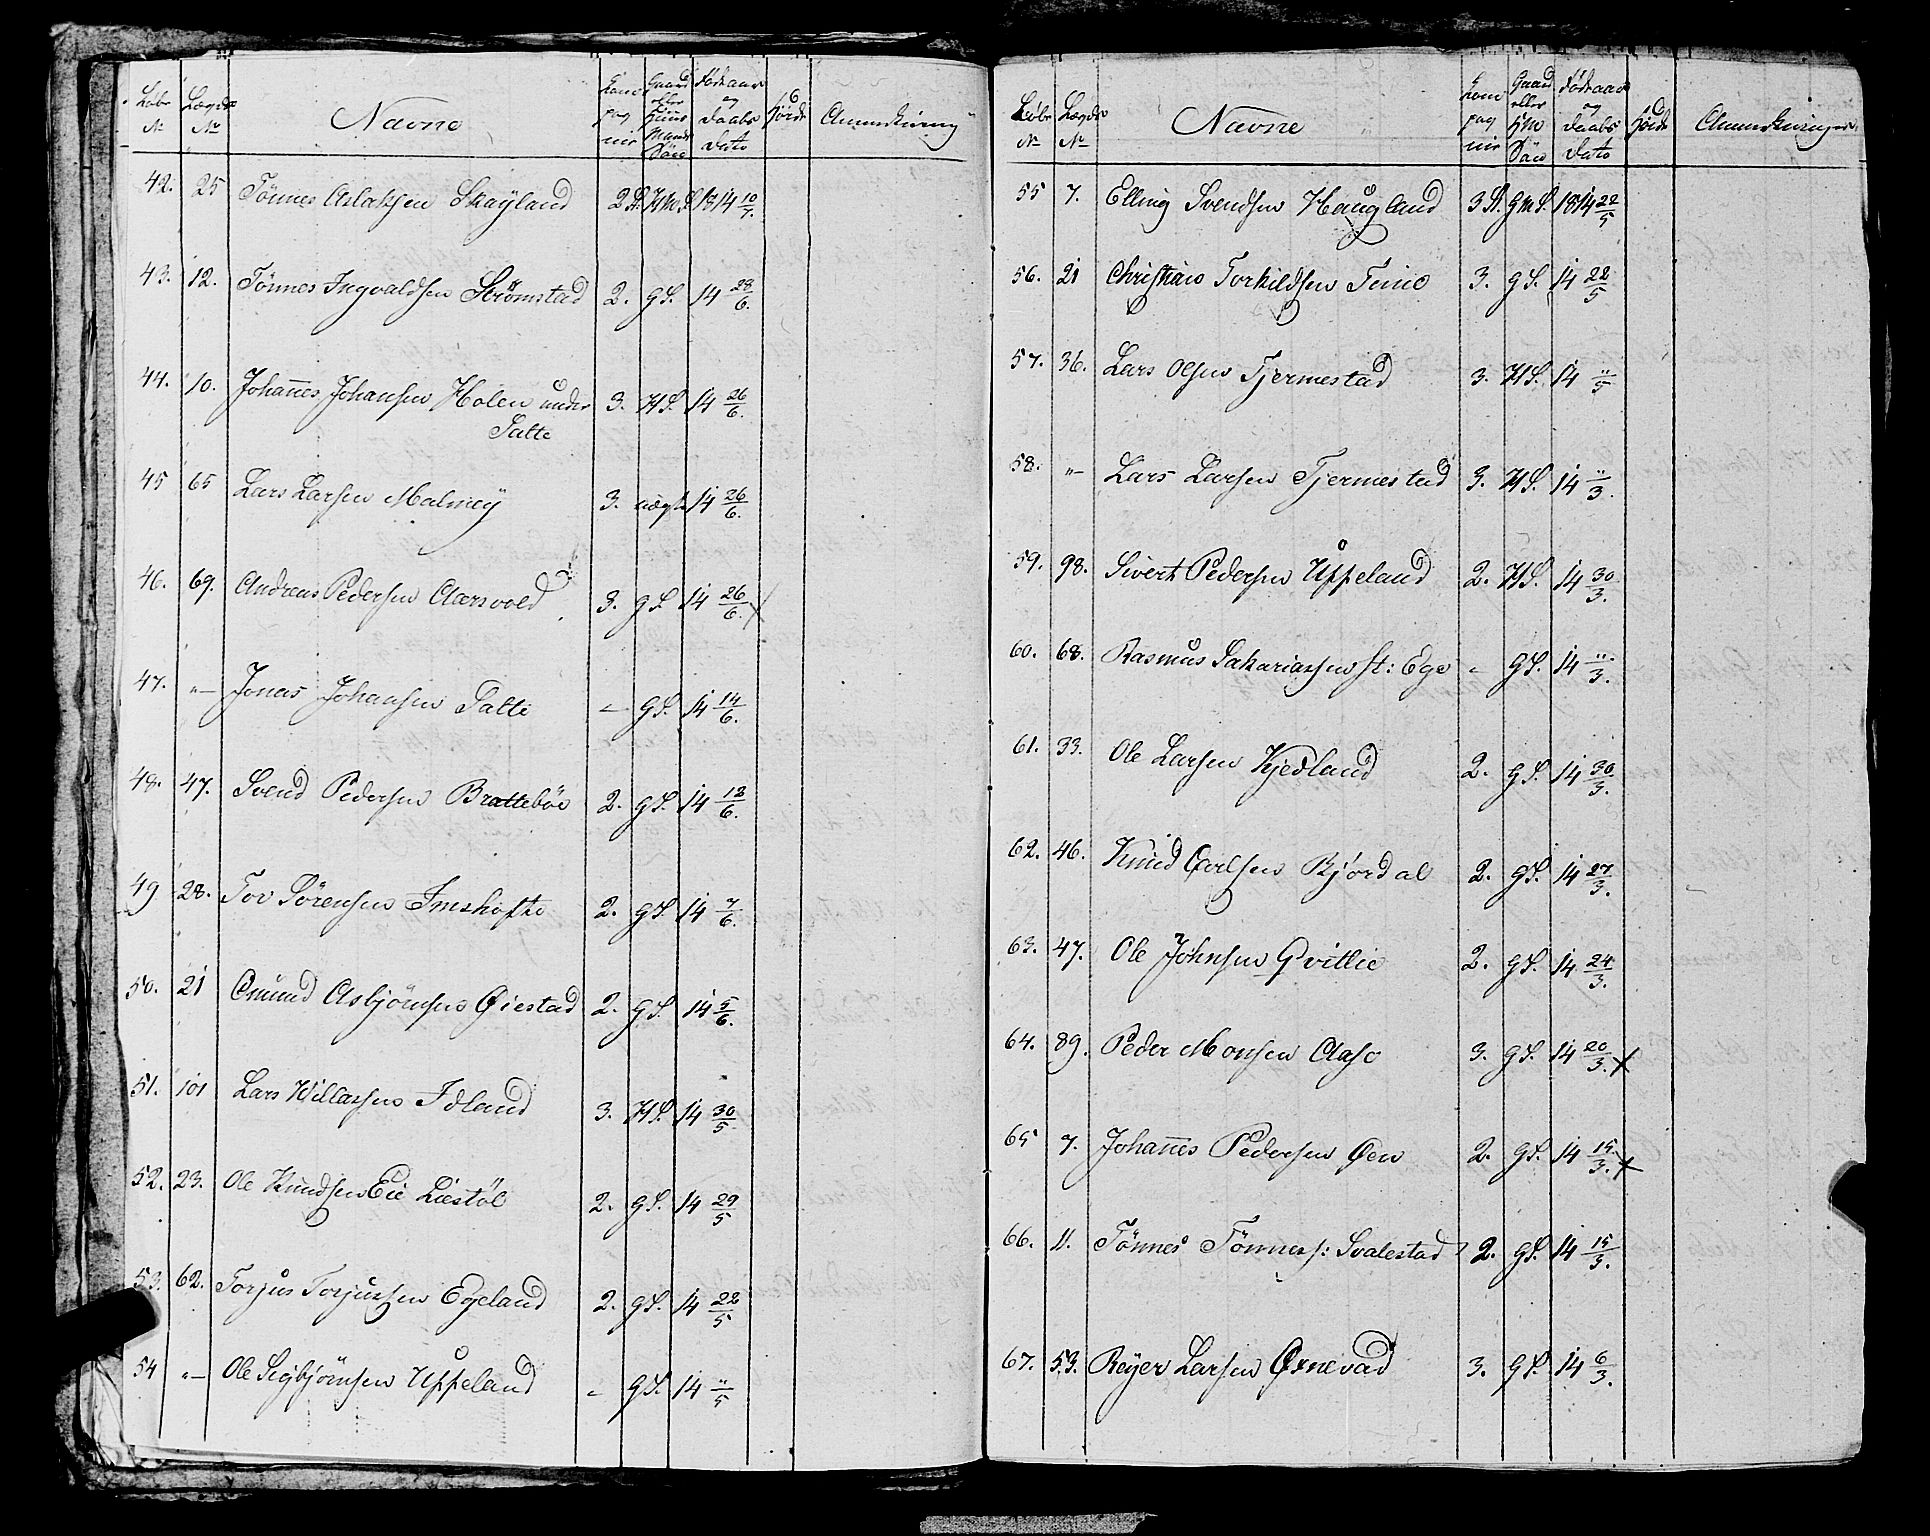 Løbe No Lægds No Navne Kompagnie Gaard eller Huus Mands Søn Fødeaar og Daabs Dato Anmerkning
42. 25 Tønnes Aslaksen Skayland 2 St. H M S. 1814 10/7.
43. 12. Tønnes Ingvaldsen Strømstad 2. g S. 14 28/6.
44. 10. Johannes Johansen Holen under 3. H S. 14 26/6.
Tatte
45 65 Lars Larsen Malmey 3. uægte 14 26/6.
46. 69. Andreas Pedersen Aarsvold 3. g S. 14 26/6. x
47. "— Jonas Johansen Tatte — g S. 14 14/6.
48. 47. Svend Pedersen Brattebøe 2. g S. 14 12/6.
49 28. Tov Sørensen Imshøfte 2. g S. 14 7/6.
50. 21 Omund Asbjørnsen Øiestad 2. g S. 14 5/6.
51. 101 Lars Willassen Idland 3. H S. 14 30/5.
52. 23. Ole Knudsen Eie Liestøl 2. g S. 14 29/5
53. 62. Torjus Torjussen Egeland 2. g S. 14 22/5
54 "— Ole Sigbjørnsen Uppeland - g S. 14 "/5
Løbe No Lægds No Navne Kompagnie Gaard eller H M Søn Fødeaar og Daabs Dato Anmerkninger
55 7. Elling Svendsen Haugland 3 St. g M S. 1814 22/5
56. 21 Christian Torkildsen 3. g S. 14 22/5
57. 36. Lars Olsen Tjermestad 3. H S. 14 "/5
58. "— Lars Larsen Tjermestad 3. H S. 14 "/3.
59. 98. Sivert Pedersen Uppeland 2. H S. 14 30/3.
60. 68. Rasmus Sakariassen st: Ege - g S. 14 "/3.
61. 33. Ole Larsen Kjedland 2. g S. 14 30/3.
62. 46. Knud Carlsen Bjørdal 2. g S. 14 27/3.
63. 47. Ole Johnsen Gvillie 2. g S. 14 24/3.
64. 89. Peder Monsen Aase 3. g S. 14 20/3. x
65 7. Johannes Pedersen Øen 2. g S. 14 15/3. x
66. 11. Tønnes Tønness: Svalestad 2. g S. 14 15/3.
67. 53. Reyer Larsen Ørnevad 3. g S. 14 6/3.